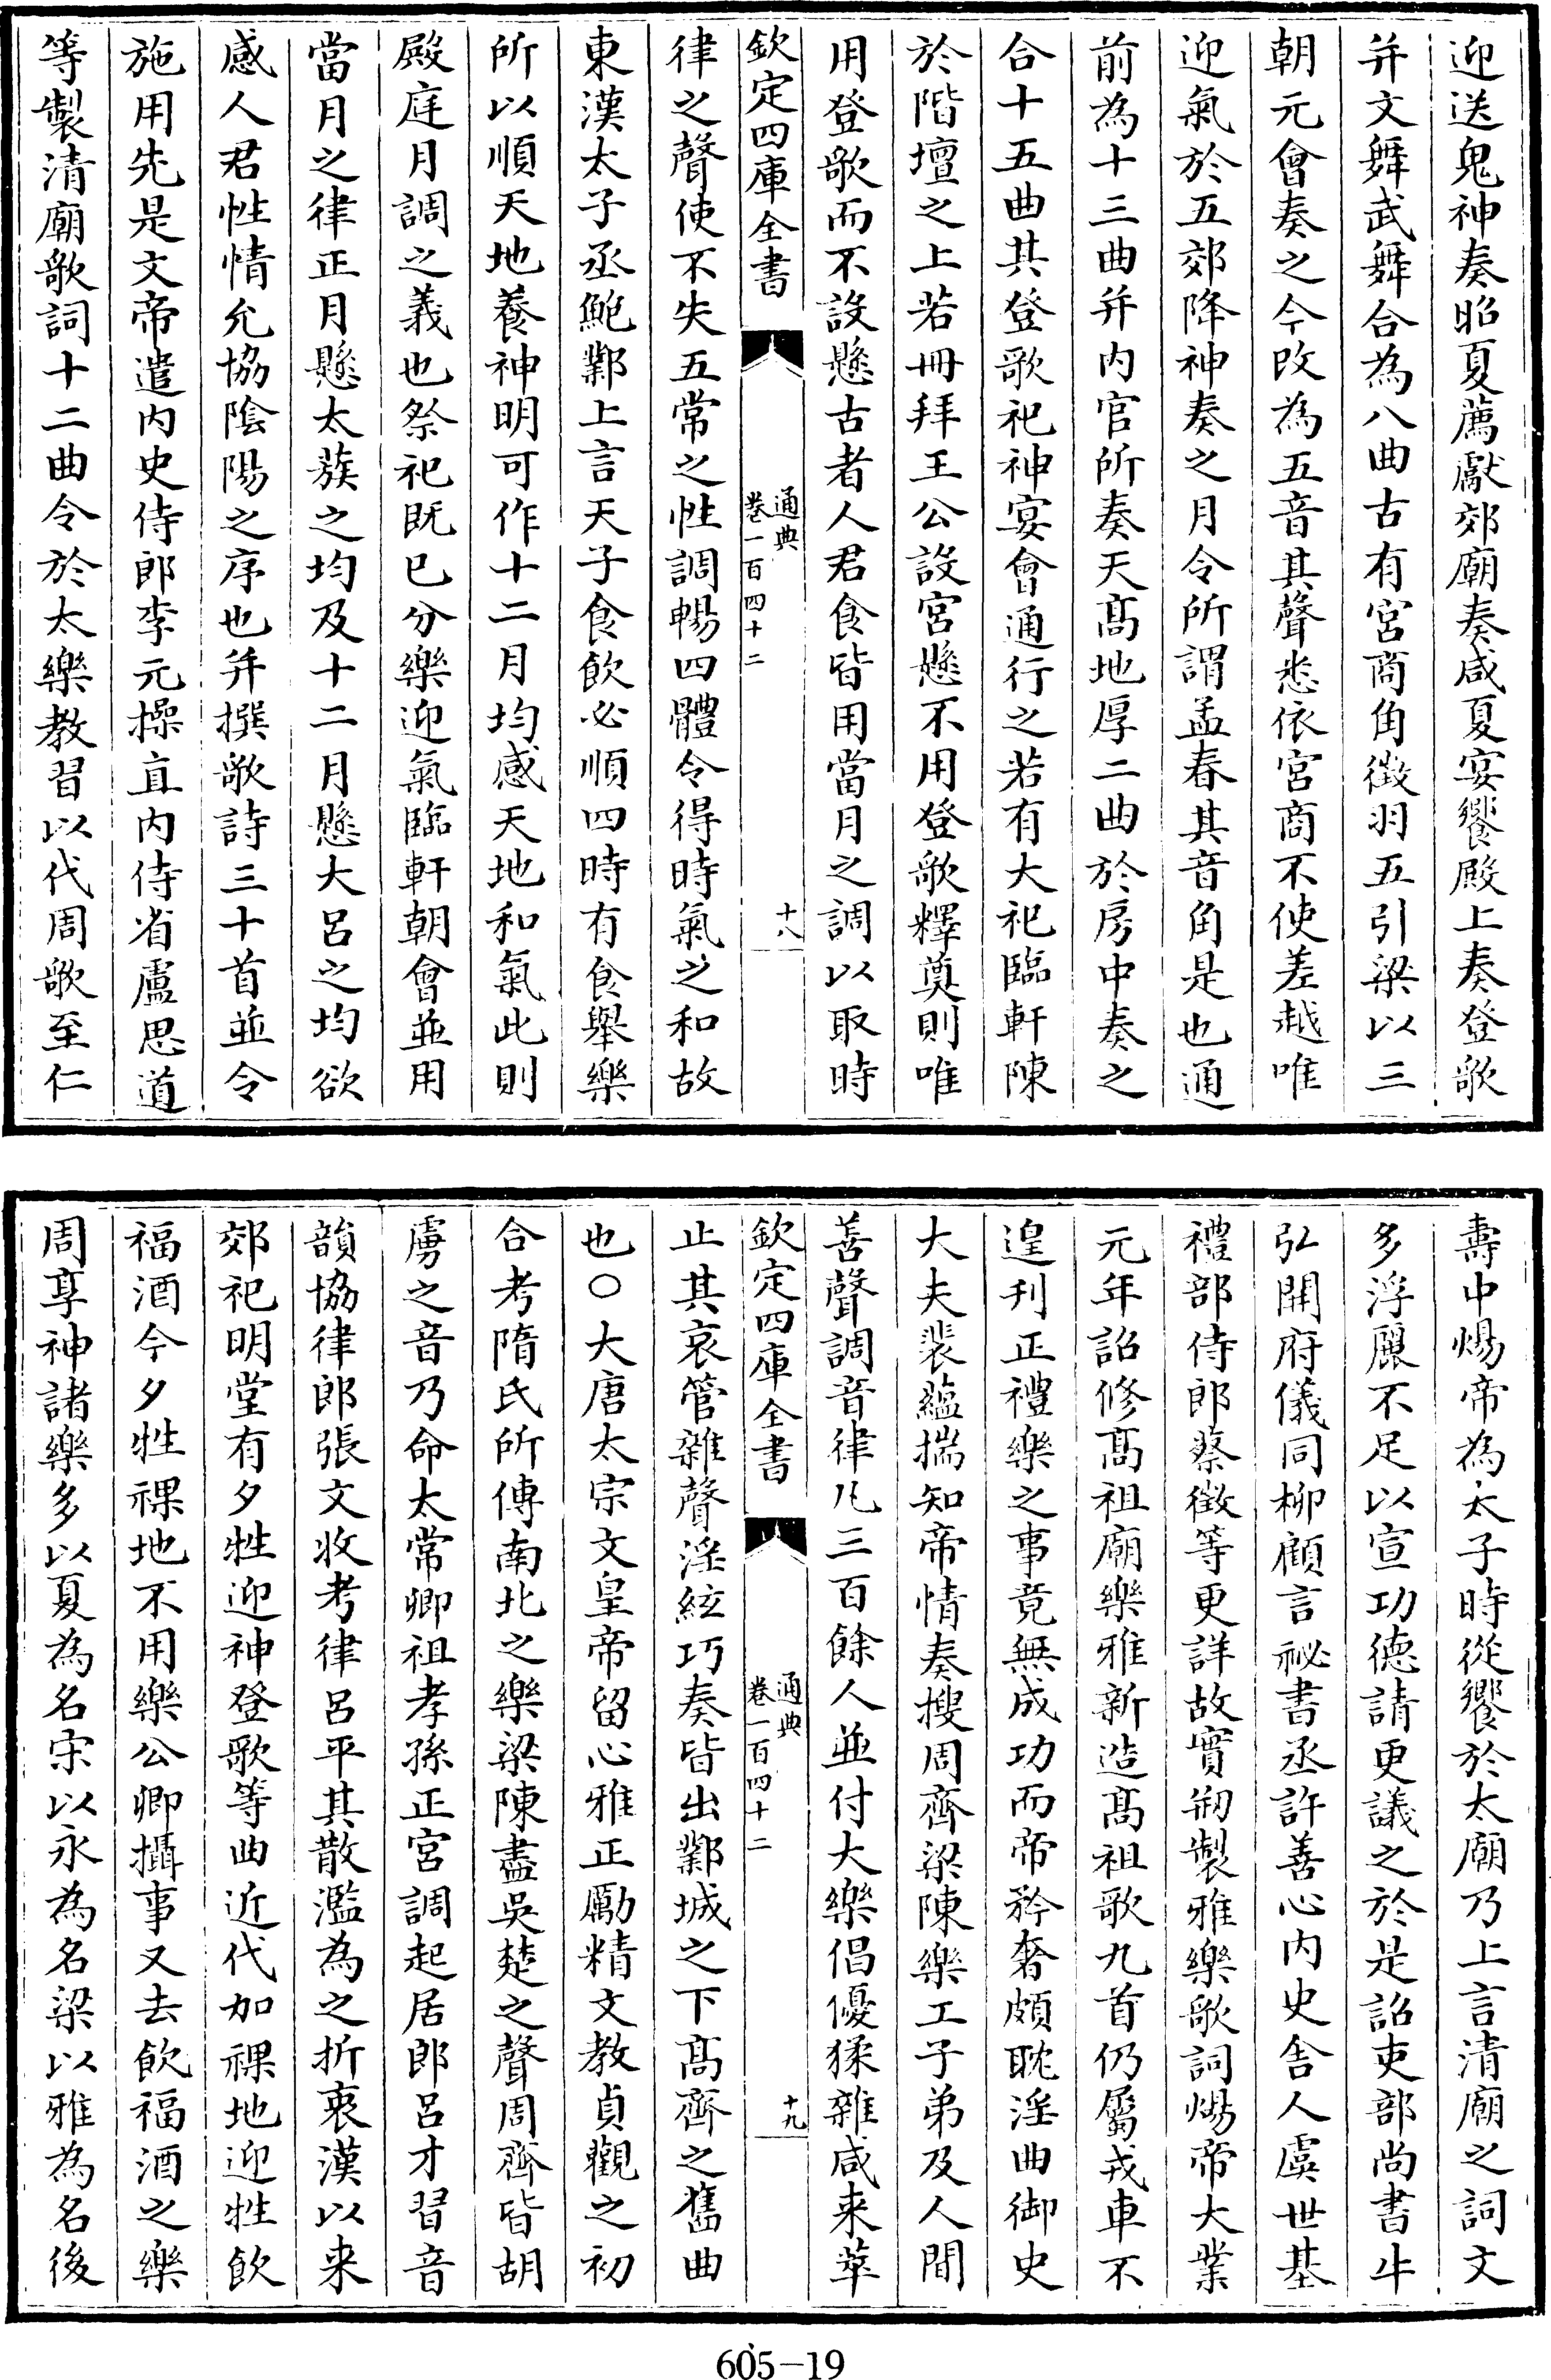 迎送鬼神奏昭夏薦獻郊廟奏咸夏宴饗殿上奏登歌
并文舞武舞合為八曲古有宮商角徵羽五引梁以三
朝元會奏之今改為五音其聲悉依宮商不使差越唯
迎氣於五郊降神奏之月令所謂孟春其音角是也通
前為十三曲并内官所奏天髙地厚二曲於房中奏之
合十五曲其登歌祀神宴會通行之若有大祀臨軒陳
於階壇之上若冊拜王公設宮懸不用登歌釋奠則唯
用登歌而不設懸古者人君食皆用當月之調以取時
欽定四庫全書
通典
卷一百四十二
十八
律之聲使不失五常之性調暢四體令得時氣之和故
東漢太子丞鮑鄴上言天子食飲必順四時有食舉樂
所以順天地養神明可作十二月均感天地和氣此則
殿庭月調之義也祭祀既已分樂迎氣臨軒朝會並用
當月之律正月懸太蔟之均及十二月懸大呂之均欲
感人君性情允協陰陽之序也并撰歌詩三十首並令
施用先是文帝遣内史侍郎李元操直内侍省盧思道
等製清廟歌詞十二曲令於太樂教習以代周歌至仁
壽中煬帝為太子時從饗於太廟乃上言清廟之詞文
多浮麗不足以宣功德請更議之於是詔吏部尚書牛
弘開府儀同柳顧言祕書丞許善心内史舍人虞世基
禮部侍郎蔡徵等更詳故實剏製雅樂歌詞煬帝大業
元年詔修髙祖廟樂雅新造髙祖歌九首仍屬戎車不
遑刋正禮樂之事竟無成功而帝矜奢頗耽淫曲御史
大夫裴蘊揣知帝情奏搜周齊梁陳樂工子弟及人間
善聲調音律凡三百餘人並付大樂倡優猱雜咸来萃
欽定四庫全書
通典
卷一百四十二
十九
止其哀管雜聲淫絃巧奏皆出鄴城之下髙齊之舊曲
也○大唐太宗文皇帝留心雅正勵精文教貞觀之初
合考隋氏所傳南北之樂梁陳盡吳楚之聲周齊皆胡
虜之音乃命太常卿祖孝孫正宮調起居郎呂才習音
韻協律郎張文收考律呂平其散濫為之折衷漢以来
郊祀明堂有夕牲迎神登歌等曲近代加祼地迎牲飲
福酒今夕牲祼地不用樂公卿攝事又去飲福酒之樂
周享神諸樂多以夏為名宋以永為名梁以雅為名後
605-19